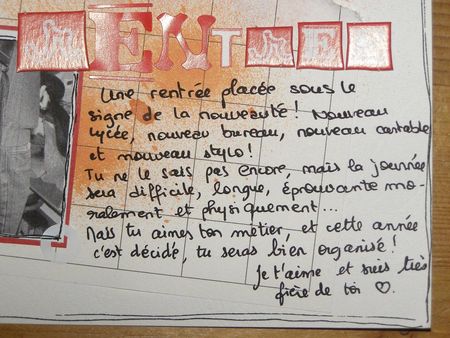 ENT
Une rentrée placée sous le
signe de la nouveauté ! Nouveau
lycée, nouveau bureau, nouveau cartable
et nouveau stylo !
Tu ne le sais pas encore, mais la journée
sera difficile, longue, éprouvante mo-
ralement et physiquement...
Mais tu aimes ton métier, et cette année
c'est décidé, tu seras bien organisé !
Je t'aime et suis très
fière de toi ♡.